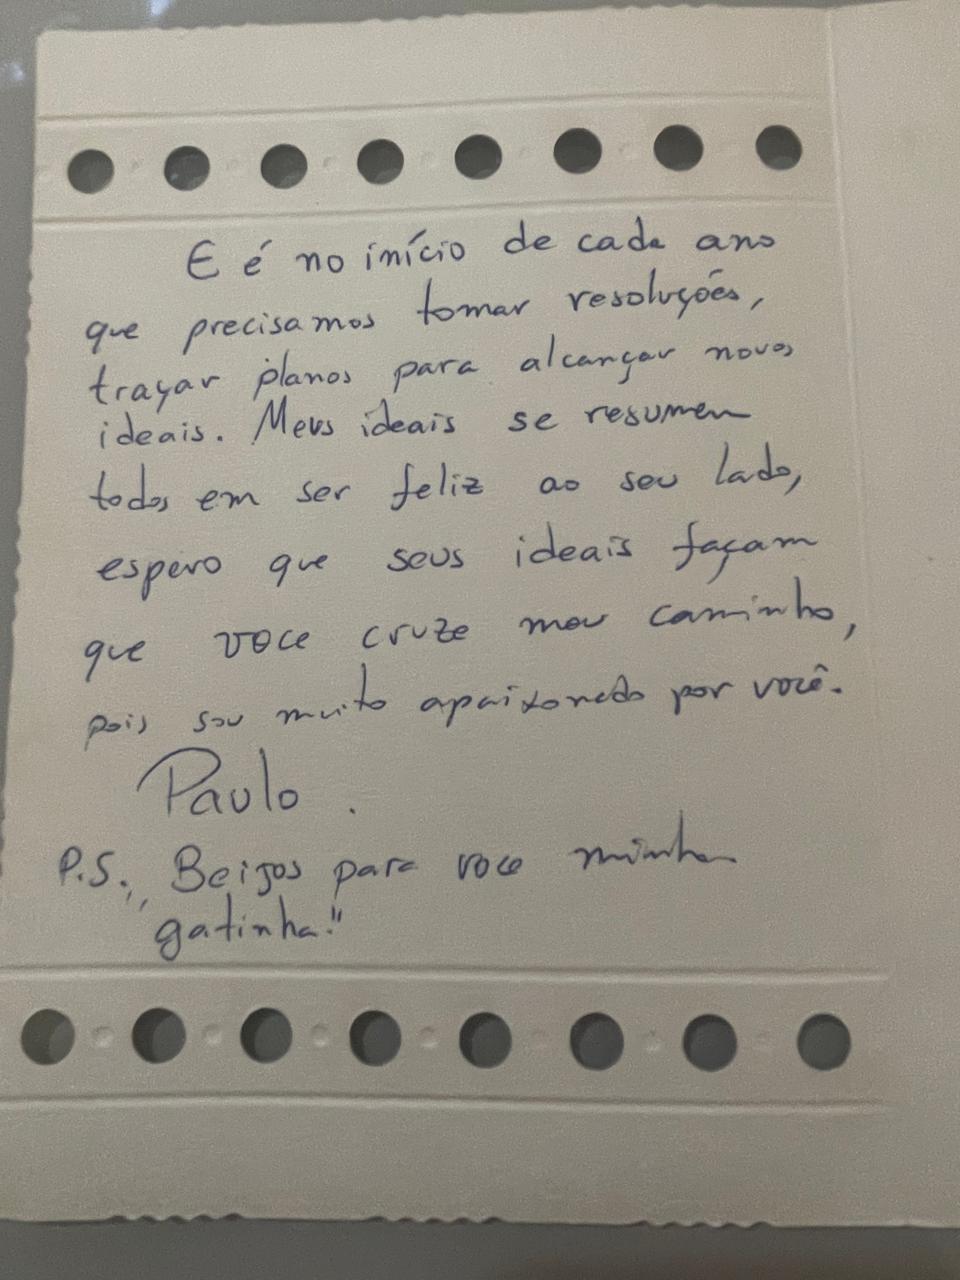 E é no início de cada ano
que precisamos tomar resoluções,
traçar planos para alcançar novos
ideais. Meus ideais se resumem
todos em ser feliz ao seu lado,
espero que seus ideais façam
que voce cruze meu caminho,
pois sou muito apaixonado por você.
Paulo.
P.S., Beijos para voce minha
"gatinha!"